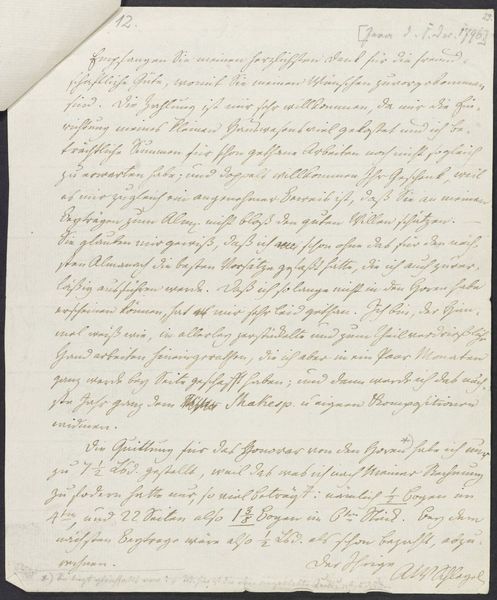 12.
[Jena d. 1. Dec. 1796]
Empfangen Sie meinen herzlichsten Dank für die freund-
schaftliche Güte, womit Sie meinen Wünschen zuvorgekommen
sind. Die Zahlung ist mir sehr willkommen, da mir die Ein-
richtung meines kleinen Hauswesens viel gekostet und ich be-
trächtliche Summen für schon gethane Arbeiten noch nicht sogleich
zu erwarten habe; und doppelt willkommen Ihr Geschenk, weil
es mir zugleich ein angenehmer Beweis ist, daß Sie an meinen
Beyträgen zum Alm. nicht bloß den guten Willen schätzen. —
Sie glauben mir gewiß, daß ich schon ohne das für den näch-
sten Almanach die besten Vorsätze gefaßt hatte, die ich auch zuver-
läßig ausführen werde. Daß ich so lange nicht in den Horen habe
erscheinen können, hat mir sehr leid gethan. Ich bin, der Him-
mel weiß wie, in allerley zerstückelte und zum Theil verdrießliche
Handarbeiten hineingerathen, die ich aber in ein Paar Monaten
ganz werde bey Seite geschafft haben; und dann werde ich das näch-
ste Jahr ganz dem Shakesp. u eignen Compositionen
widmen.
Die Quittung für das Honorar von den Horen *) habe ich nur
zu 7 ½ Lsd. gestellt, weil das was ich nach meiner Rechnung
zu fodern hatte nur so viel beträgt: nämlich ½ Bogen im
4ten und 22 Seiten also 1 3/8 Bogen im 6ten Stück. Bey dem
nächsten Beytrage wäre also ½ Lsd. als schon bezahlt, abzu-
rechnen.
Der Ihrige
AWSchlegel